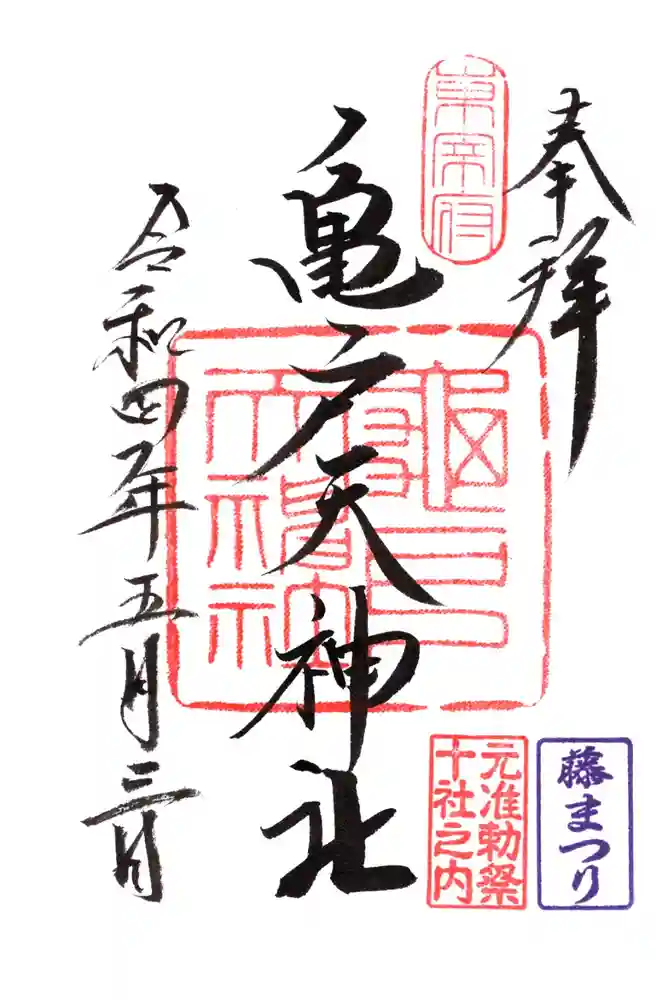 奉拝
東宰府
亀戸天神社
令和四年五月三日
藤まつり
元准勅祭
十社之内